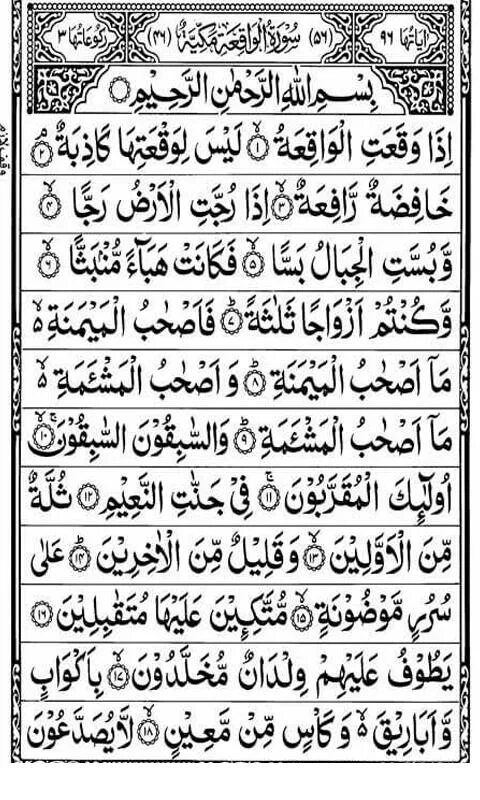 اٰيَاتُهَا ٩٦ (٥٦) سُوْرَةُ الْوَاقِعَةِ مَكِّيَّةٌ (٤٦) رُكُوْعَاتُهَا ٣
بِسْمِ اللهِ الرَّحْمٰنِ الرَّحِيْمِ
اِذَا وَقَعَتِ الْوَاقِعَةُ ۙ﴿١﴾ لَيْسَ لِوَقْعَتِهَا كَاذِبَةٌ ۘ﴿٢﴾
خَافِضَةٌ رَّافِعَةٌ ۙ﴿٣﴾ اِذَا رُجَّتِ الْاَرْضُ رَجًّا ۙ﴿٤﴾
وَّبُسَّتِ الْجِبَالُ بَسًّا ۙ﴿٥﴾ فَكَانَتْ هَبَآءً مُّنْۢبَثًّا ۙ﴿٦﴾
وَّكُنْتُمْ اَزْوَاجًا ثَلٰثَةً ؕ﴿٧﴾ فَاَصْحٰبُ الْمَيْمَنَةِ ۙ۬
مَاۤ اَصْحٰبُ الْمَيْمَنَةِ ؕ﴿٨﴾ وَاَصْحٰبُ الْمَشْـَٔمَةِ ۙ۬
مَاۤ اَصْحٰبُ الْمَشْـَٔمَةِ ؕ﴿٩﴾ وَالسّٰبِقُوْنَ السّٰبِقُوْنَ ۚۙ﴿١٠﴾
اُولٰٓئِكَ الْمُقَرَّبُوْنَ ۚ﴿١١﴾ فِيْ جَنّٰتِ النَّعِيْمِ ﴿١٢﴾ ثُلَّةٌ
مِّنَ الْاَوَّلِيْنَ ۙ﴿١٣﴾ وَقَلِيْلٌ مِّنَ الْاٰخِرِيْنَ ؕ﴿١٤﴾ عَلٰى
سُرُرٍ مَّوْضُوْنَةٍ ۙ﴿١٥﴾ مُّتَّكِـِٕيْنَ عَلَيْهَا مُتَقٰبِلِيْنَ ﴿١٦﴾
يَطُوْفُ عَلَيْهِمْ وِلْدَانٌ مُّخَلَّدُوْنَ ۙ﴿١٧﴾ بِاَكْوَابٍ
وَّاَبَارِيْقَ ۙ۬ وَكَاْسٍ مِّنْ مَّعِيْنٍ ۙ﴿١٨﴾ لَّا يُصَدَّعُوْنَ